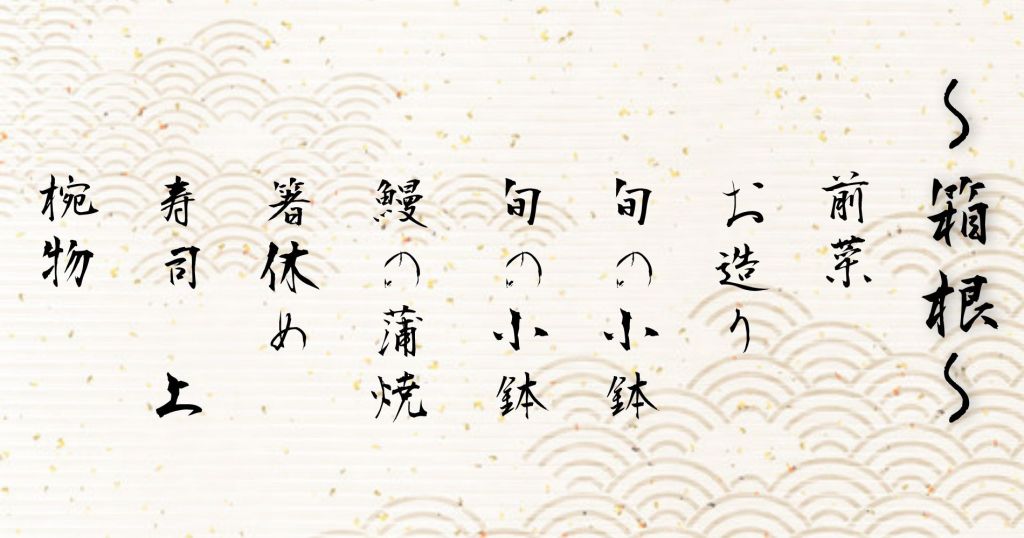 ～箱根～
前菜
お造り
旬の小鉢
旬の小鉢
鰻の蒲焼
箸休め
寿司　上
椀物